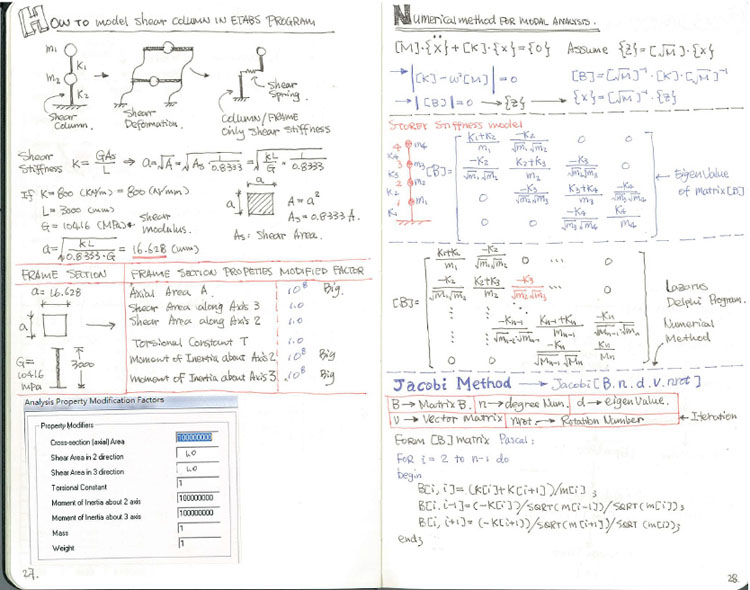 HOW TO model shear column IN ETABS PROGRAM
m₁
K₁
m₂
K₂
Shear Column.
Shear Deformation.
Shear Spring.
Column/FRAME
Only Shear Stiffness
Shear Stiffness K = GAs/L → a = √A = √(As · 1/0.8333) = √(KL/G · 1/0.8333)
If K = 800 (KN/m) = 800 (N/mm)
L = 3000 (mm)
G = 10416 (MPa) ← Shear modulus.
a = √(KL/0.8333·G) = 16.628 (mm)
a
a
A = a²
As = 0.8333 A.
As: Shear Area.
FRAME SECTION
FRAME SECTION PROPETIES MODIFIED FACTOR
a = 16.628
a
G = 10416 mpa
3000
Axial Area A. 10⁸ Big.
Shear Area along Axis 3 1.0
Shear Area along Axis 2 1.0
Torsional Constant T 1.0
Moment of Inertia about Axis 2 10⁸ Big
moment of Inertia about Axis 3 10⁸ Big
Analysis Property Modification Factors
Property Modifiers
Cross-section (axial) Area 100000000
Shear Area in 2 direction 1.0
Shear Area in 3 direction 1.0
Torsional Constant 1
Moment of Inertia about 2 axis 100000000
Moment of Inertia about 3 axis 100000000
Mass 1
Weight 1
27.
Numerical method FOR MODAL ANALYSIS.
[M]·{Ẍ} + [K]·{x} = {0} Assume {Z} = [√M]·{x}
→ |[K] - ω²[M]| = 0 [B] = [√M]⁻¹·[K]·[√M]⁻¹
→ |[B]| = 0 → {Z} → {x} = [√M]⁻¹·{Z}
STOREY Stiffness model
4 m₄
K₄
3 m₃
K₃
2 m₂
K₂
1 m₁
K₁
[B] =
K₁+K₂/m₁ -K₂/√m₁√m₂ 0 0
-K₂/√m₁√m₂ K₂+K₃/m₂ -K₃/√m₂√m₃ 0
0 -K₃/√m₂√m₃ K₃+K₄/m₃ -K₄/√m₃√m₄
0 0 -K₄/√m₃√m₄ K₄/m₄
← Eigen Value of Matrix [B]
[B] =
K₁+K₂/m₁ -K₂/√m₁√m₂ 0 ... 0
-K₂/√m₁√m₂ K₂+K₃/m₂ -K₃/√m₂√m₃ 0
-Kn-1/√mn-2·√mn-1 Kn-1+Kn/mn-1 -Kn/√mn-1·√mn
0 0 -Kn/√mn-1√mn Kn/mn
Lazarus
Delphi Program.
Numerical
Method
Jacobi Method → Jacobi [B. n. d. v. nrot]
B → Matrix B. n → degree Num. d → eigen Value.
v → Vector matrix nrot. → Rotation Number ← Iteration
FORM [B] matrix Pascal:
FOR i = 2 to n-1 do
begin
B[i, i] = (K[i]+K[i+1])/m[i];
B[i, i-1] = (-K[i])/SQRT(m[i-1])/SQRT(m[i]);
B[i, i+1] = (-K[i+1])/SQRT(m[i+1])/SQRT(m[i]);
end;
28.